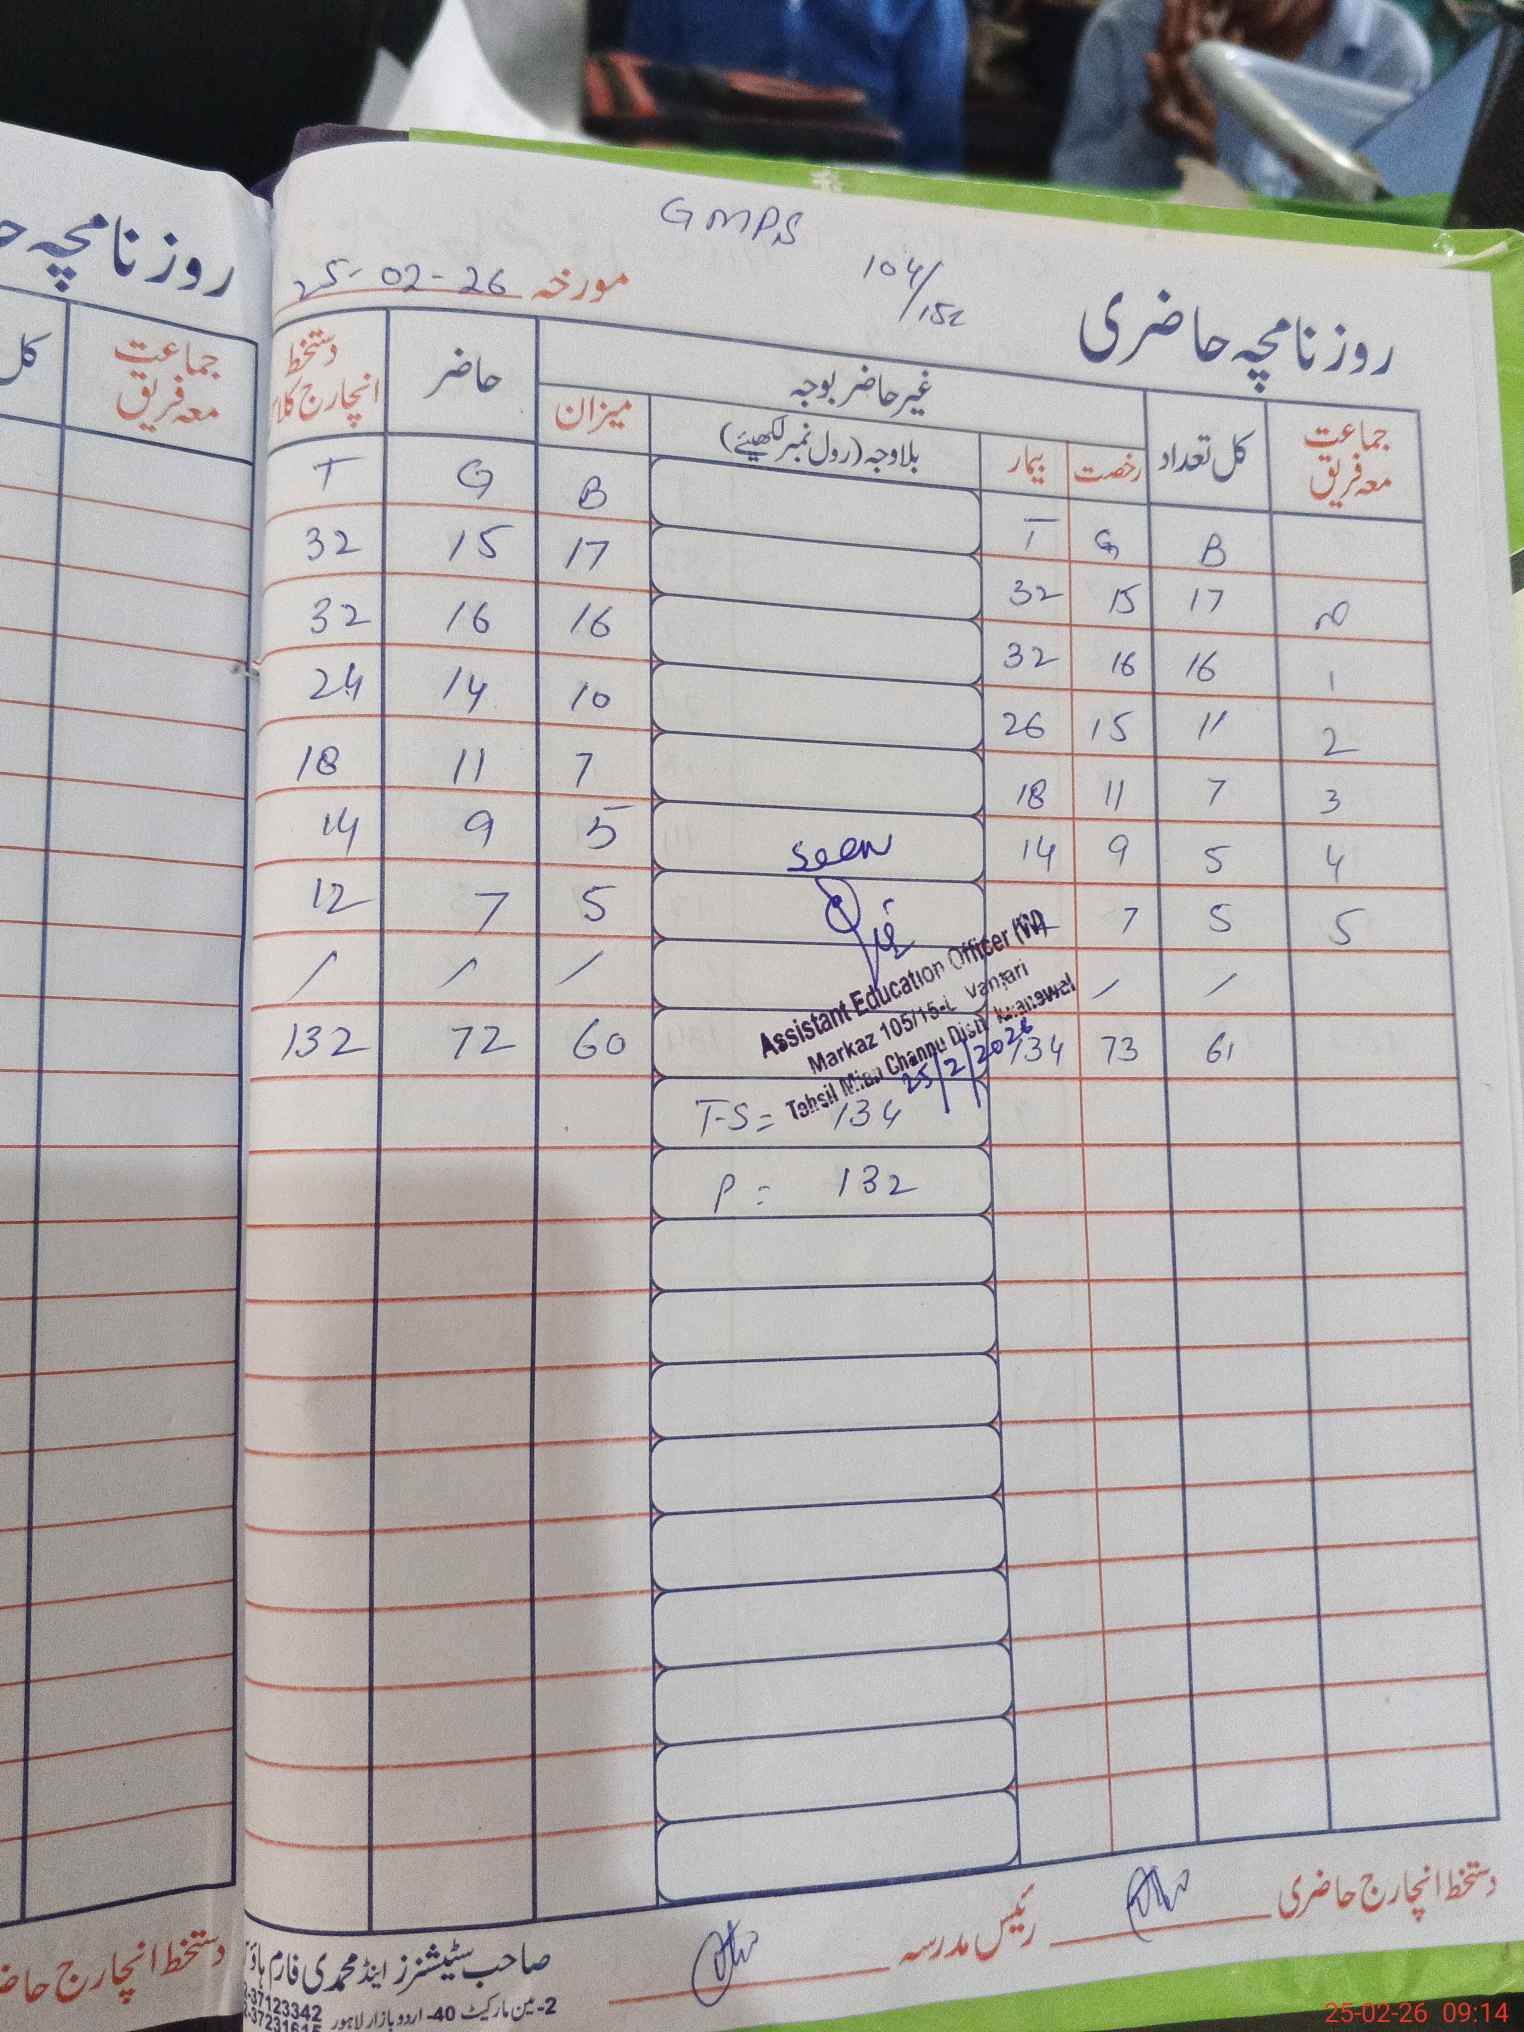 GMPS
104/15L
روزنامچہ حاضری
مورخہ 25-02-26
جماعت معہ فریق | کل تعداد | غیر حاضر بوجہ | حاضر | دستخط انچارج کلاس
رخصت | بیمار | بلاوجہ (رول نمبر لکھیئے) | میزان
B | G | T | B | G | T
17 | 15 | 32 | 17 | 15 | 32
1 | 16 | 16 | 32 | 16 | 16 | 32
2 | 11 | 15 | 26 | 10 | 14 | 24
3 | 7 | 11 | 18 | 7 | 11 | 18
4 | 5 | 9 | 14 | 5 | 9 | 14
5 | 5 | 7 | 5 | 7 | 12
/ | / | / | / | /
61 | 73 | 134 | 60 | 72 | 132
seen
Assistant Education Officer (W)
Markaz 105/15-L Vanjari
Tahsil Mian Channu Distt. Khanewal
25/2/2026
T-S = 134
P = 132
دستخط انچارج حاضری
رئیس مدرسہ
صاحب سٹیشنرز اینڈ محمدی فارم ہاؤ
2-مین مارکیٹ 40-اردو بازار لاہور
37123342
روزنامچہ
جماعت معہ فریق | کل
دستخط انچارج
25-02-26 09:14